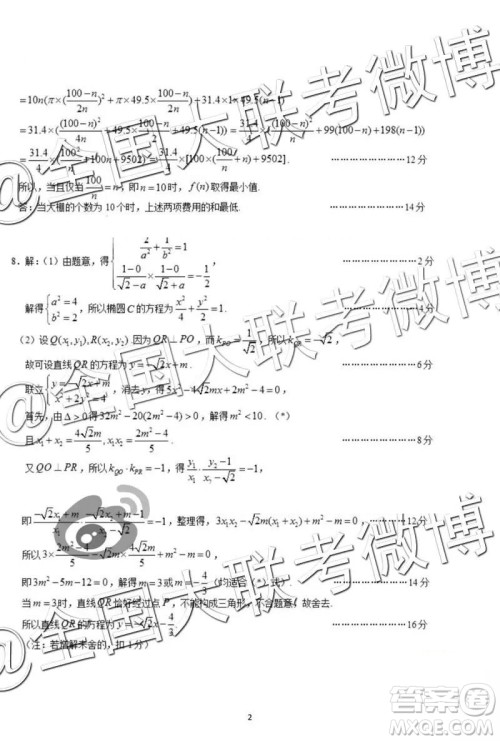 =10n(π×(\frac{100-n}{2n})^2+π×49.5×\frac{100-n}{2n})+31.4×1×49.5(n-1)
=31.4×(\frac{(100-n)^2}{4n}+49.5×\frac{100-n}{2})+31.4×49.5(n-1)
=\frac{31.4}{4}×(\frac{(100-n)^2}{n}+99(100-n)+198(n-1))
=\frac{31.4}{4}×(\frac{100^2}{n}+100n+9502)=\frac{31.4}{4}×[100×(\frac{100}{n}+n)+9502]. ………………12分
所以,当且仅当\frac{100}{n}=n,即n=10时,f(n)取得最小值.
答:当大棚的个数为10个时,上述两项费用的和最低. ………………14分
8.解:(1)由题意,得{\frac{2}{a^2}+\frac{1}{b^2}=1 \frac{1-0}{\sqrt{2}-a}×\frac{1-0}{\sqrt{2}+a}=-\frac{1}{2} ………………2分
解得{a^2=4 b^2=2,所以椭圆C的方程为\frac{x^2}{4}+\frac{y^2}{2}=1. ………………4分
(2)设Q(x_1,y_1),R(x_2,y_2) 因为QR⊥PO,而k_{PO}=\frac{1}{\sqrt{2}},所以k_{QR}=-\sqrt{2},
故可设直线QR的方程为y=-\sqrt{2}x+m. ………………6分
联立{y=-\sqrt{2}x+m x^2+2y^2=4,消去y,得5x^2-4\sqrt{2}mx+2m^2-4=0,
首先,由Δ>0得32m^2-20(2m^2-4)>0,解得m^2<10.(*)
且x_1+x_2=\frac{4\sqrt{2}m}{5},x_1x_2=\frac{2m^2-4}{5}, ………………8分
又QO⊥PR,所以k_{QO}·k_{PR}=-1,得\frac{y_1}{x_1}·\frac{y_2-1}{x_2-\sqrt{2}}=-1,
即\frac{-\sqrt{2}x_1+m}{x_1}·\frac{-\sqrt{2}x_2+m-1}{x_2-\sqrt{2}}=-1,整理得,3x_1x_2-\sqrt{2}m(x_1+x_2)+m^2-m=0, 12分
即3m^2-5m-12=0,解得m=3或m=-\frac{4}{3}(均适合(*)式). ………………14分
当m=3时,直线QR恰好经过点P,不能构成三角形,不合题意,故舍去.
所以直线QR的方程为y=-\sqrt{2}x-\frac{4}{3}. ………………16分
(注:若增解未舍的,扣1分)
2
@全国大联考微博
@全国大联考微博
@全国大联考微博
答案圈
MXQE.COM